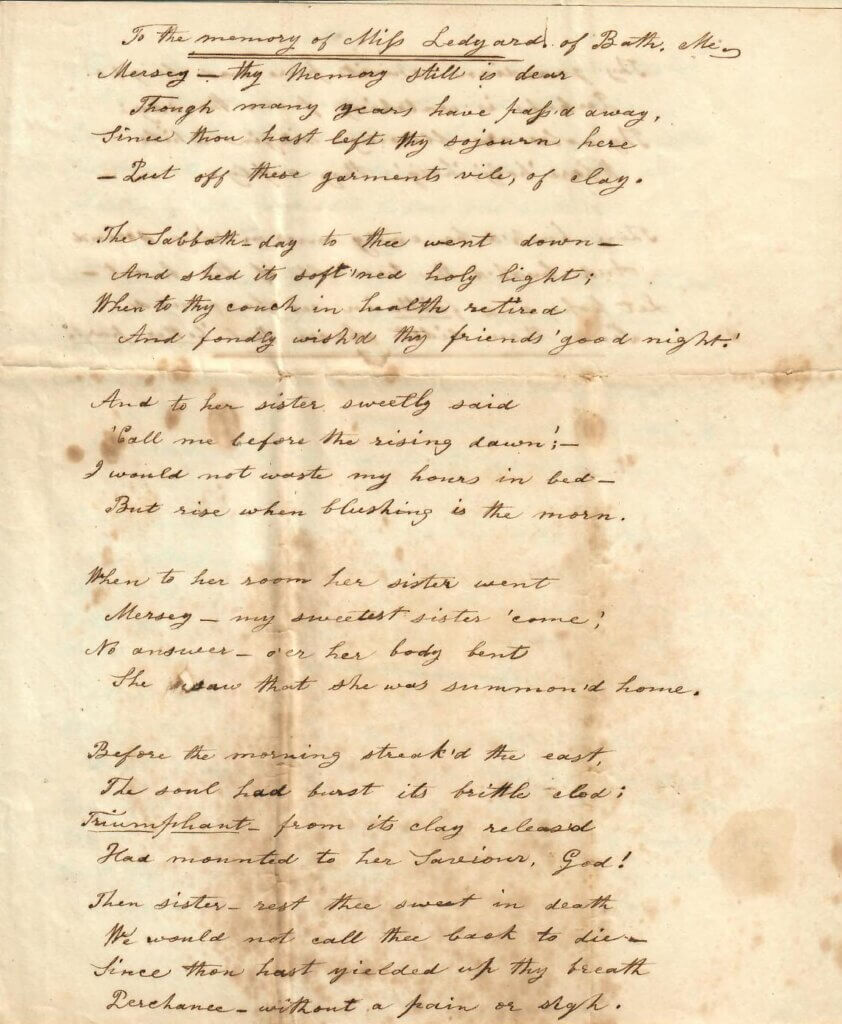 To the memory of Miss Ledyard. of Bath. Me
Mersey – thy Memory still is dear
Though many years have pass'd away,
Since thou hast left thy sojourn here
– Put off these garments vile, of clay.
The Sabbath-day to thee went down –
And shed its soft'ned holy light;
When to thy couch in health retired
And fondly wish'd thy friends 'good night.'
And to her sister sweetly said
'Call me before the rising dawn'; –
I would not waste my hours in bed –
But rise when blushing is the morn.
When to her room her sister went
Mersey – my sweetest sister 'come,'
No answer – o'er her body bent
She saw that she was summon'd home.
Before the morning streak'd the east,
The soul had burst its brittle clod;
Triumphant – from its clay releas'd
Had mounted to her Saviour, God!
Then sister – rest thee sweet in death
We would not call thee back to die –
Since thou hast yielded up thy breath
Perchance – without a pain or sigh.